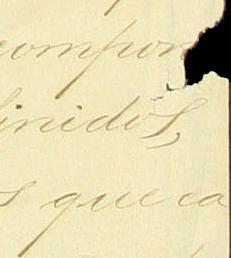 compon
finidos,
s que ca